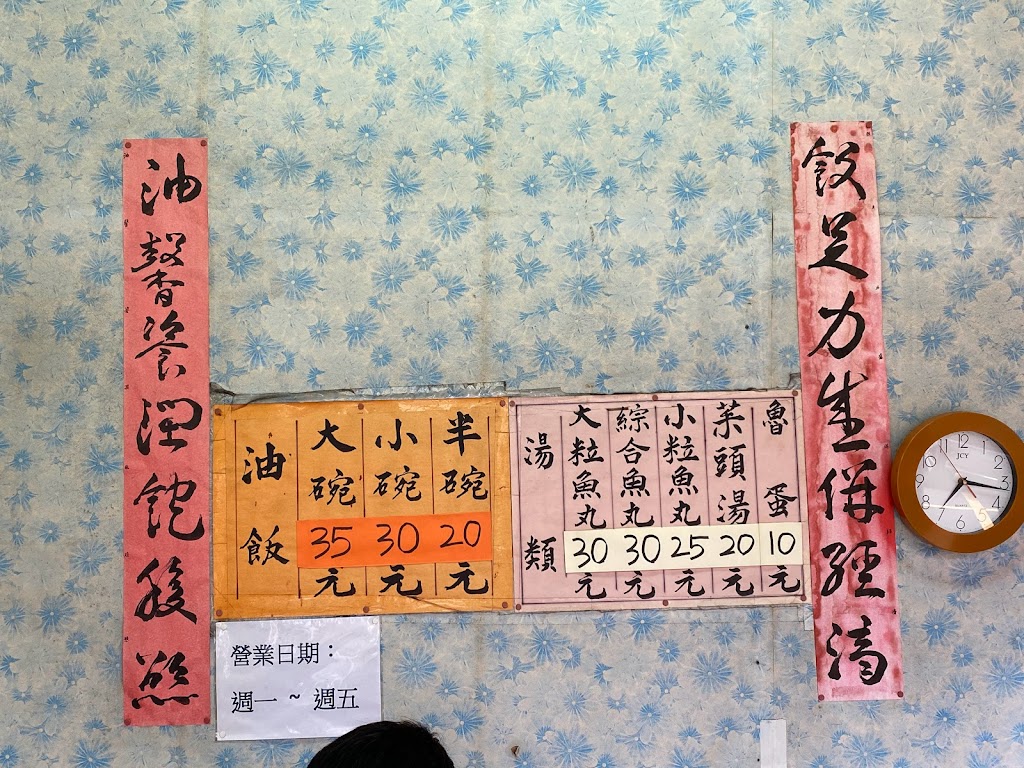 油馨潤飽
飯足力生併經濟
油飯
大碗35元
小碗30元
半碗20元
湯類
大粒魚丸30元
綜合魚丸30元
小粒魚丸25元
菜頭湯20元
魯蛋10元
營業日期：
週一 ~ 週五
JCY